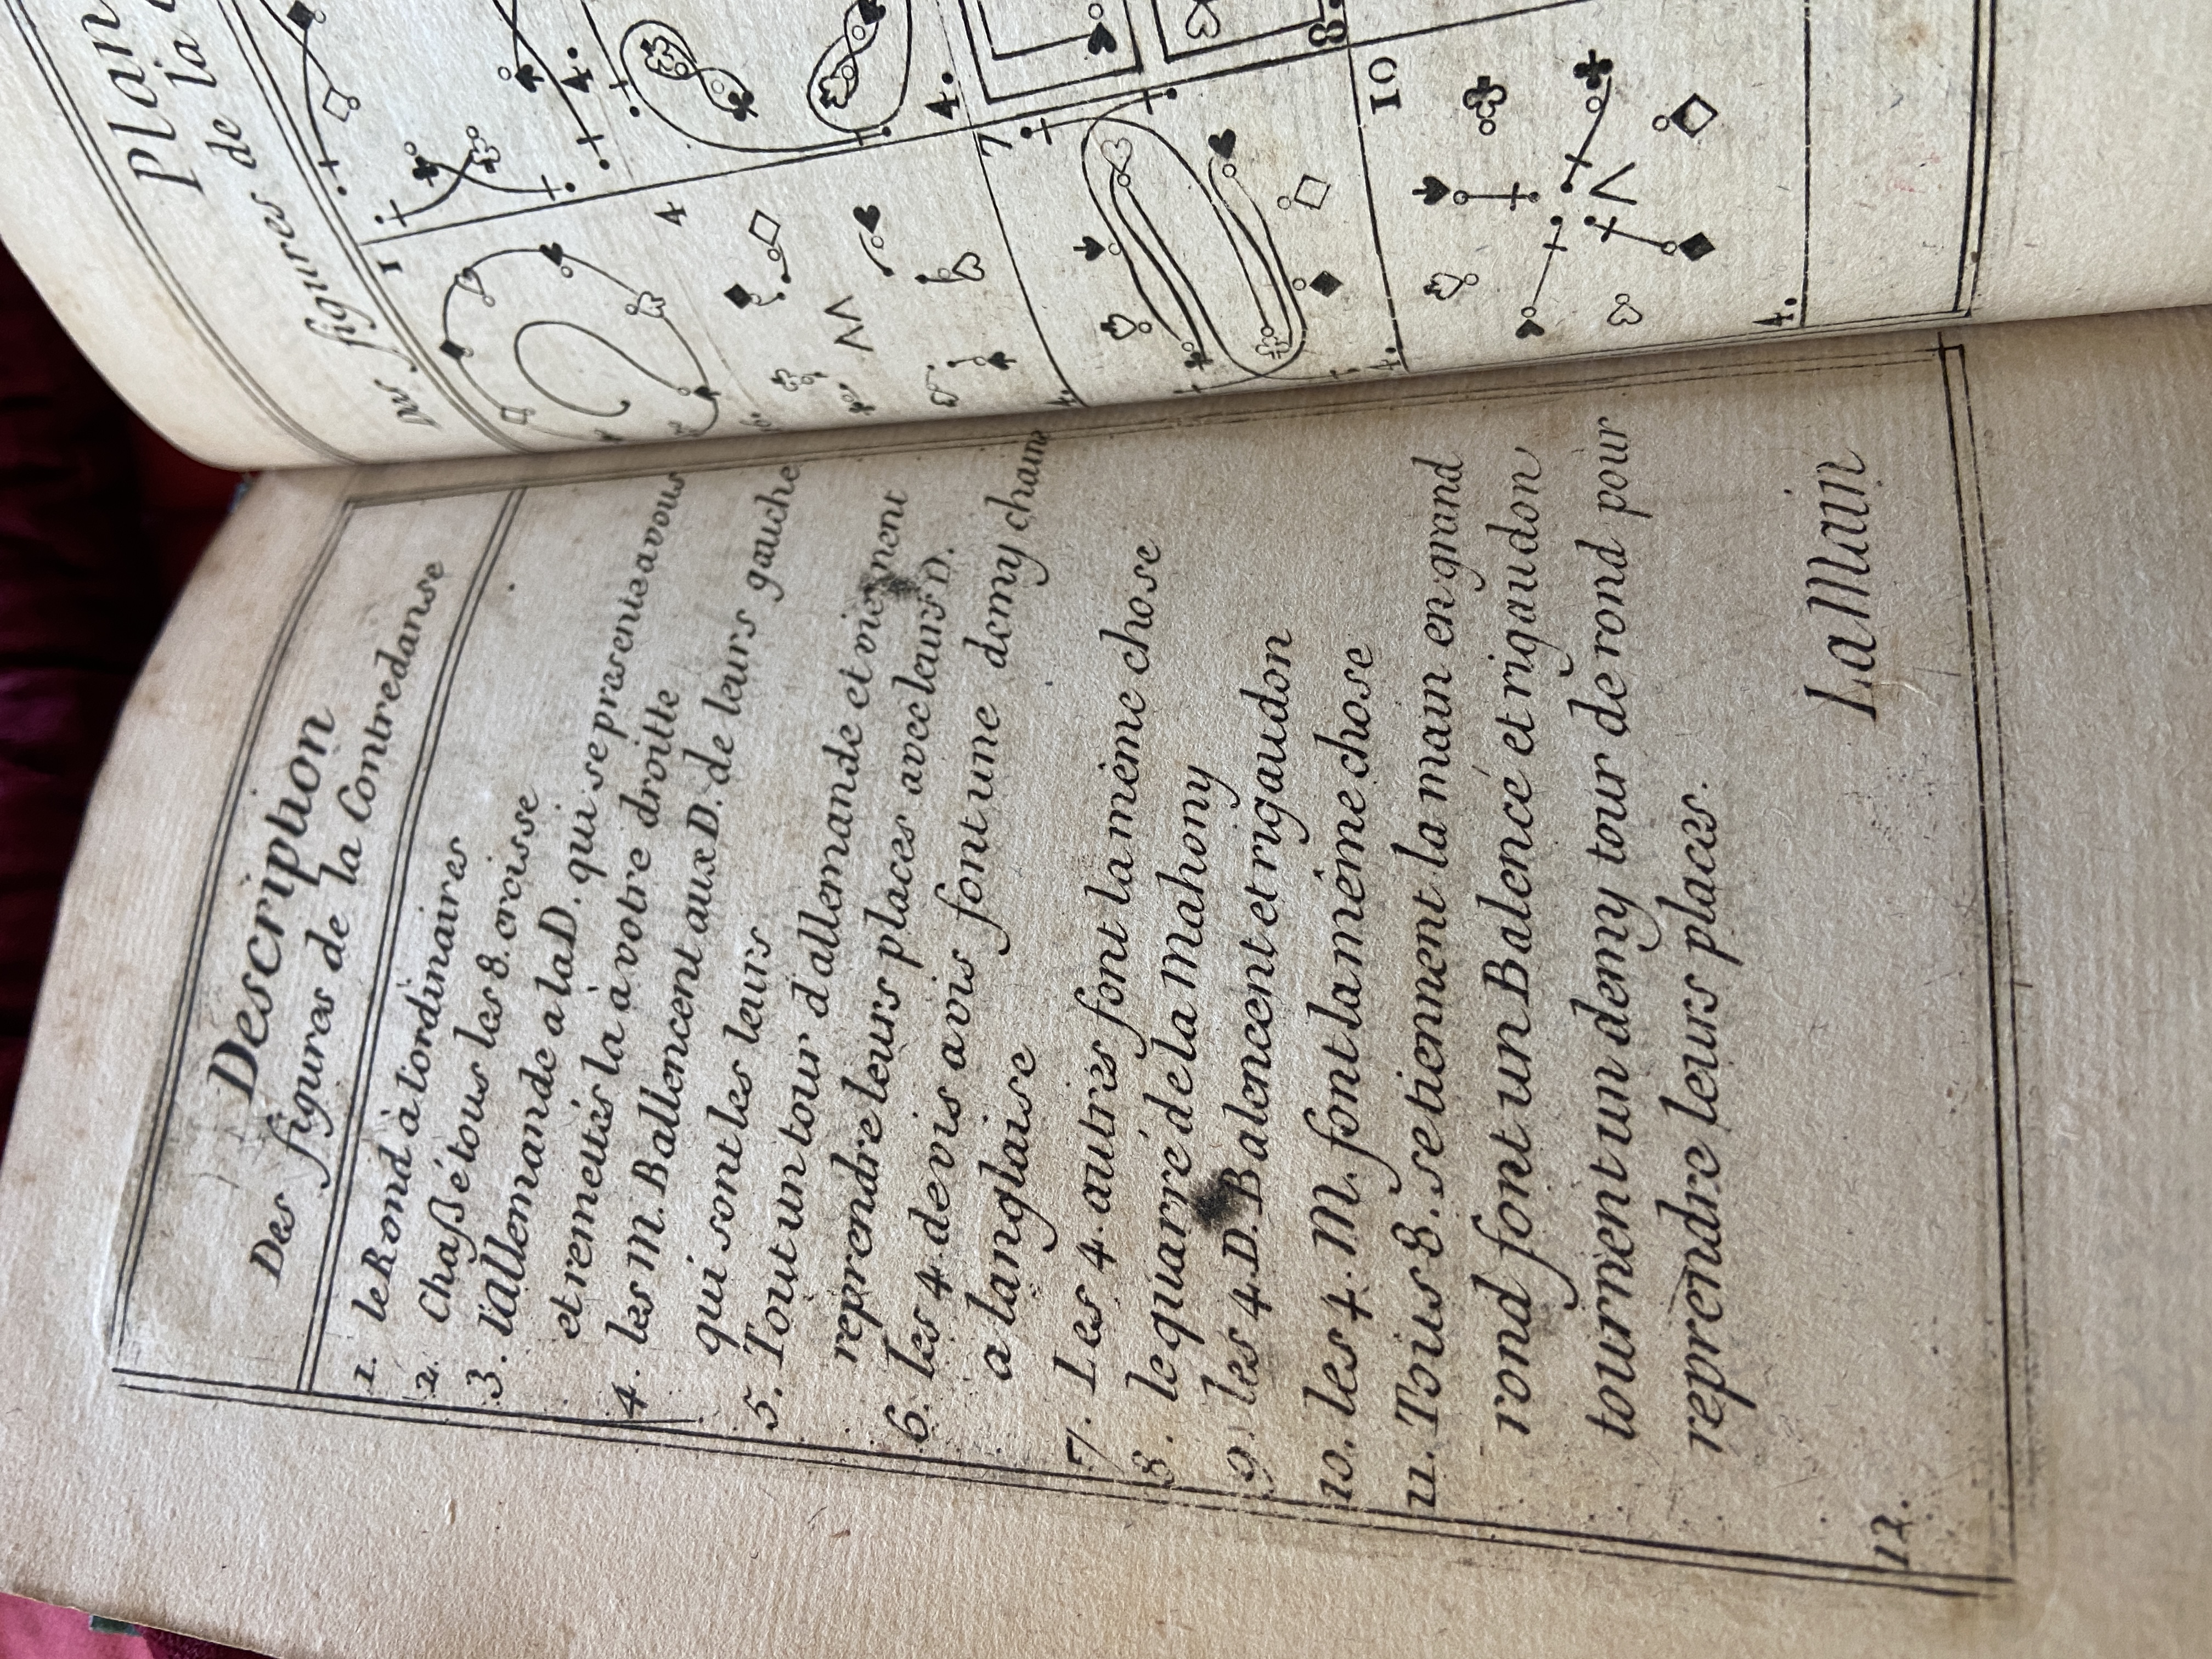 Description
Des figures de la Contredanse
1. le Rond à l'ordinaires
2. Chaßé tous les 8. croisse
3. l'allemande a la D. qui se presente a vous
et remettés la à votre droitte
4. les M. Ballencent aux D. de leurs gauche
qui sont les leurs
5. Tout un tour d'allemande et viennent
reprendre leurs places avec leurs D.
6. les 4 de vis a vis font une demy chaine
a langlaise
7. Les 4. autres font la même chose
8. le quarré de la Mahony
9 les 4. D. Balencent et rigaudon
10. les 4. M. font la même chose
11. Tous 8. se tiennent la main en grand
rond font un Balencé et rigaudon
tournent un demy tour de rond pour
reprendre leurs places.
12.
La Main
Plan
des figures de la
1
4.
4
4.
7
8.
4.
10
4.